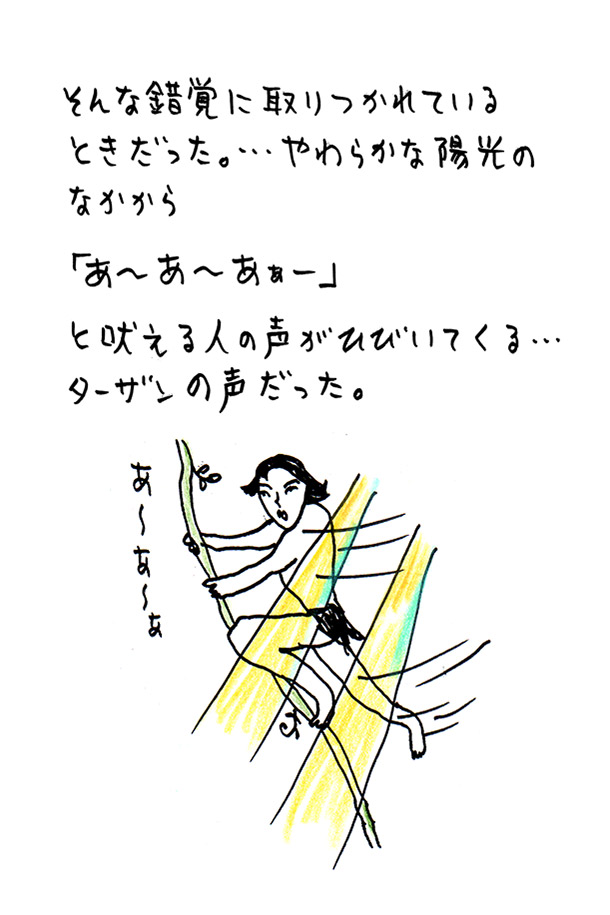 そんな錯覚に取りつかれている
ときだった。…やわらかな陽光の
なかから
「あ〜あ〜あぁー」
と吠える人の声がひびいてくる…
ターザンの声だった。
あ〜あ〜ぁ